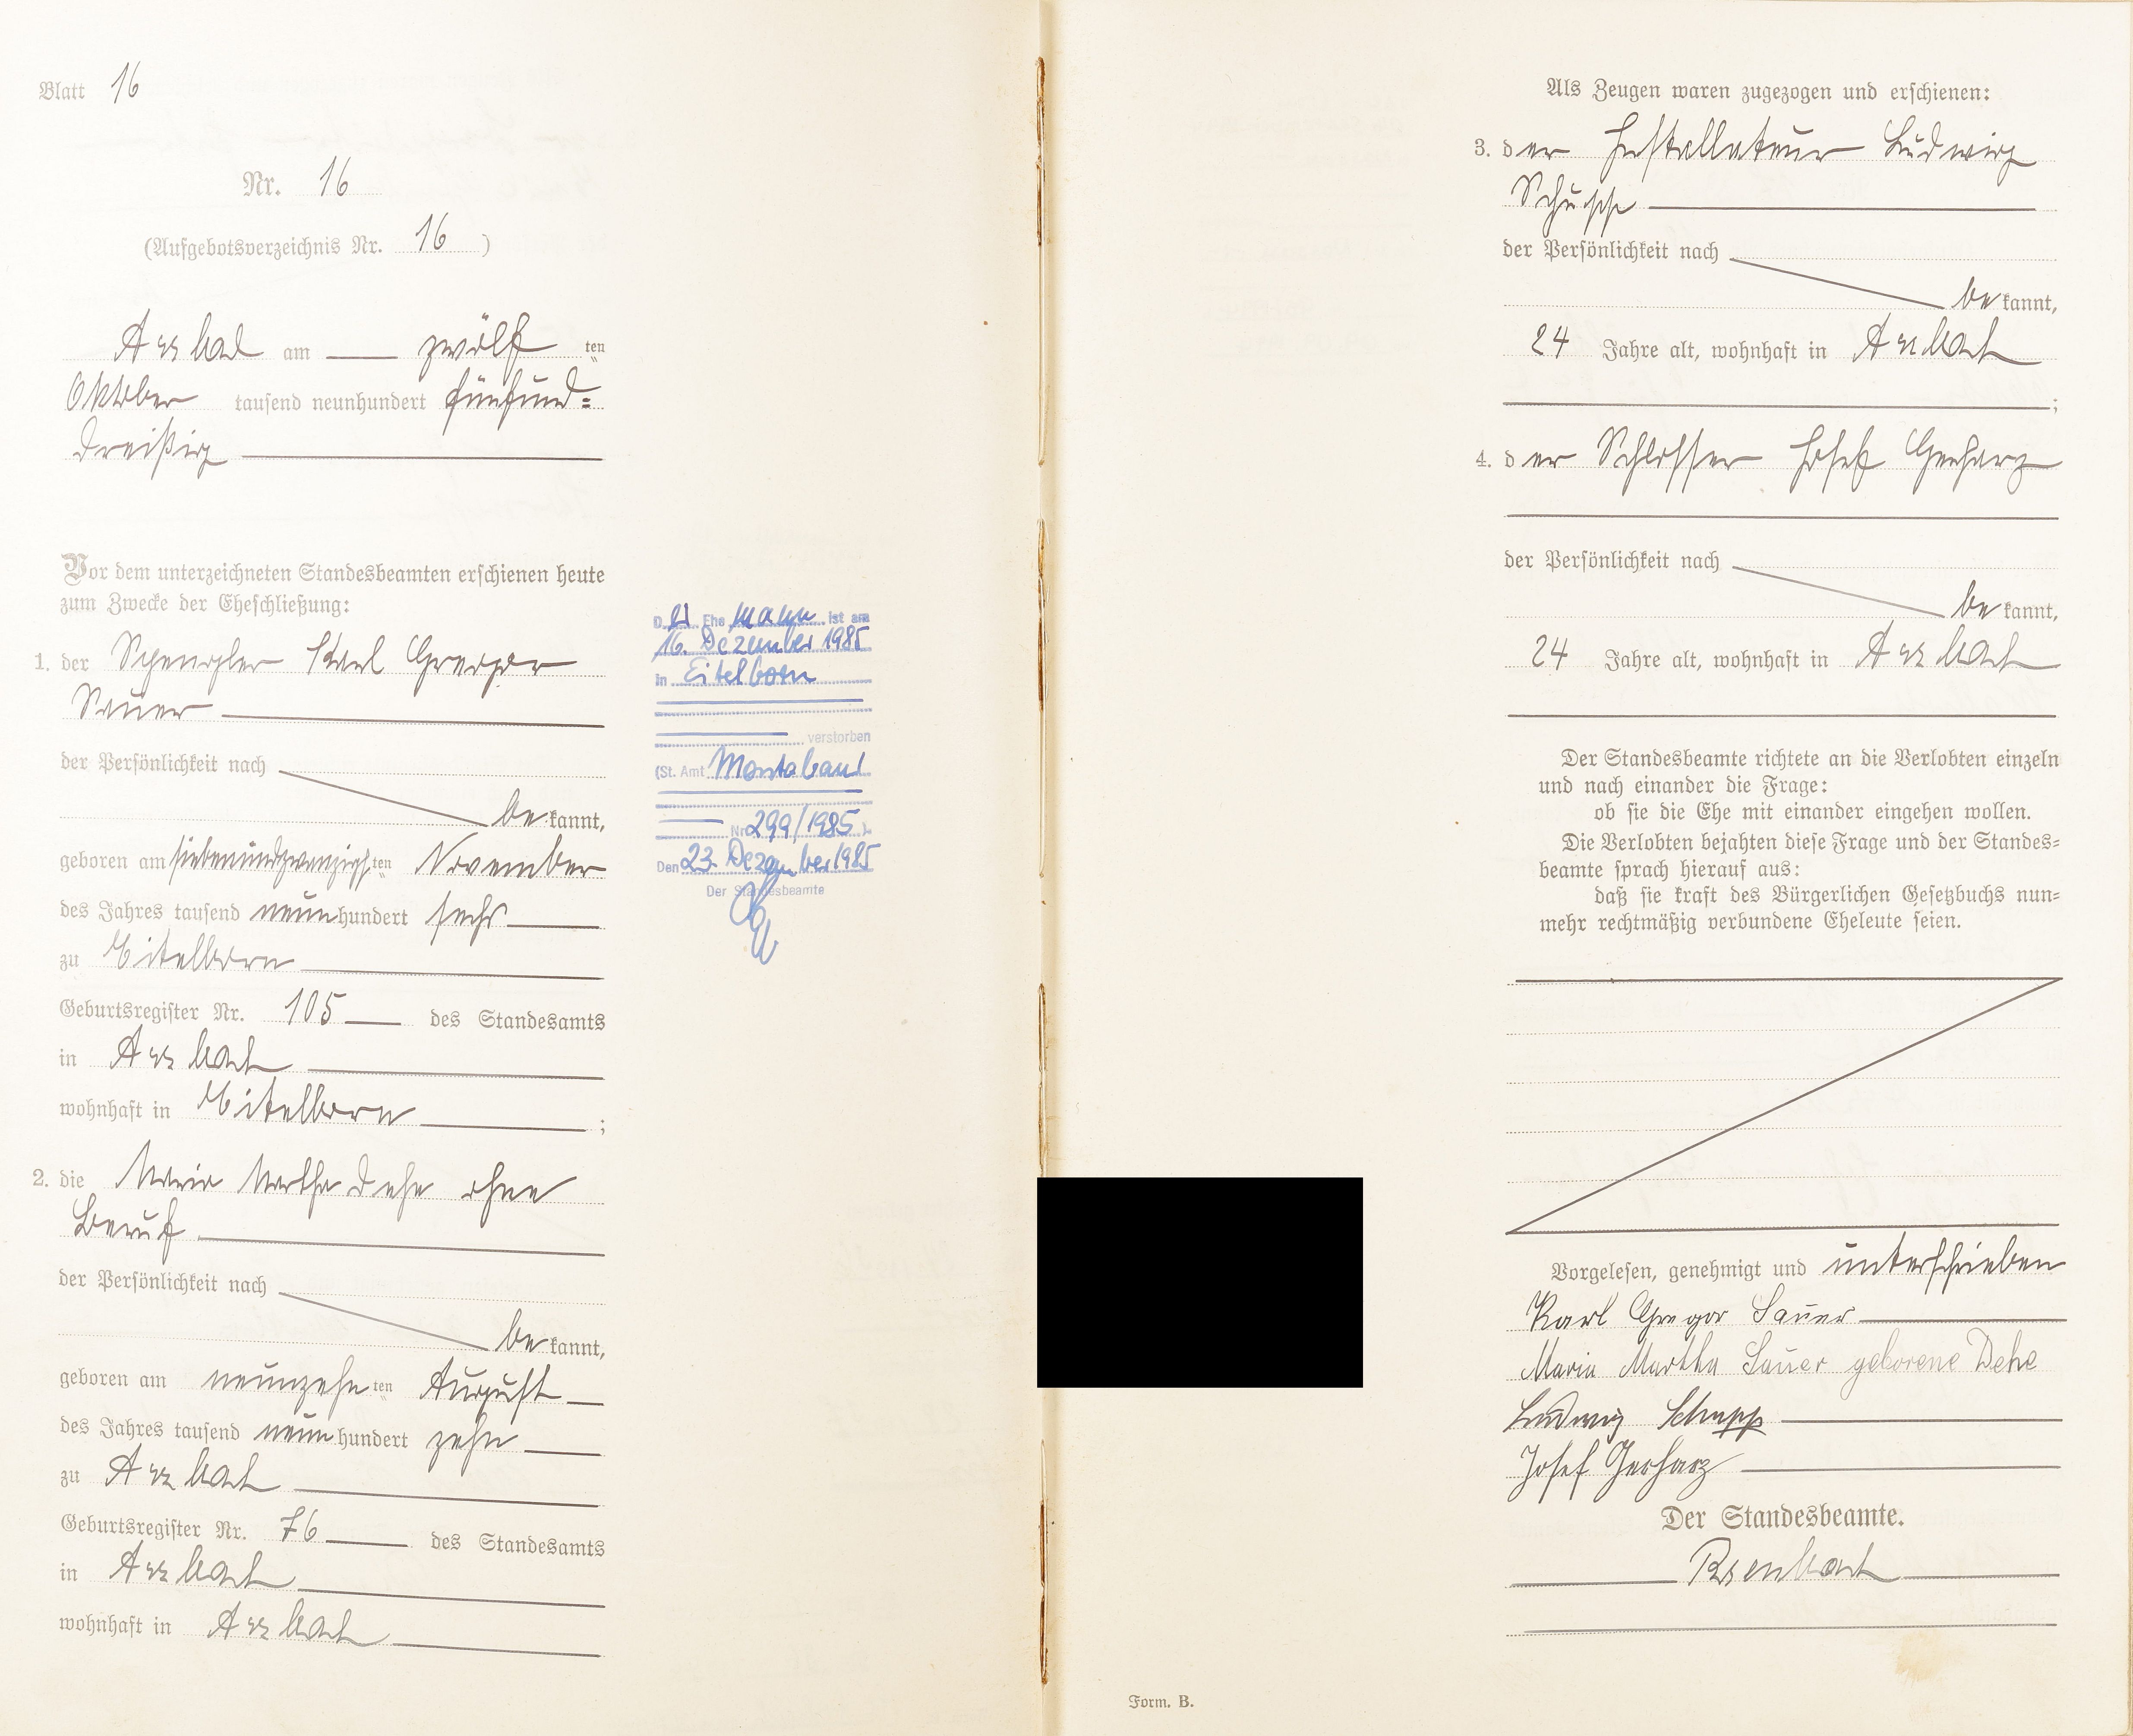 Blatt 16
Nr. 16
(Aufgebotsverzeichnis Nr. 16)
Arzbach am zwölf ten
Oktober tausend neunhundert fünfund=
dreißig
Vor dem unterzeichneten Standesbeamten erschienen heute
zum Zwecke der Eheschließung:
1. der Spengler Karl Gregor
Sauer
der Persönlichkeit nach
be kannt,
geboren am siebenundzwanzigsten November
des Jahres tausend neunhundert sechs
zu Eitelborn
Geburtsregister Nr. 105 des Standesamts
in Arzbach
wohnhaft in Eitelborn ;
2. die Maria Martha Dehe ohne
Beruf
der Persönlichkeit nach
be kannt,
geboren am neunzehn ten August
des Jahres tausend neunhundert zehn
zu Arzbach
Geburtsregister Nr. 76 des Standesamts
in Arzbach
wohnhaft in Arzbach
D er Ehe mann ist am
16. Dezember 1985
in Eitelborn
verstorben
(St. Amt Montabaur
Nr. 299/1985 )
Den 23. Dezember 1985
Der Standesbeamte
Als Zeugen waren zugezogen und erschienen:
3. der Installateur Ludwig
Schupp
der Persönlichkeit nach
be kannt,
24 Jahre alt, wohnhaft in Arzbach
;
4. der Schlosser Josef Gerharz
der Persönlichkeit nach
be kannt,
24 Jahre alt, wohnhaft in Arzbach
Der Standesbeamte richtete an die Verlobten einzeln
und nach einander die Frage:
ob sie die Ehe mit einander eingehen wollen.
Die Verlobten bejahten diese Frage und der Standes=
beamte sprach hierauf aus:
daß sie kraft des Bürgerlichen Gesetzbuchs nun=
mehr rechtmäßig verbundene Eheleute seien.
Vorgelesen, genehmigt und unterschrieben
Karl Gregor Sauer
Maria Martha Sauer geborene Dehe
Ludwig Schupp
Josef Gerharz
Der Standesbeamte.
Form. B.